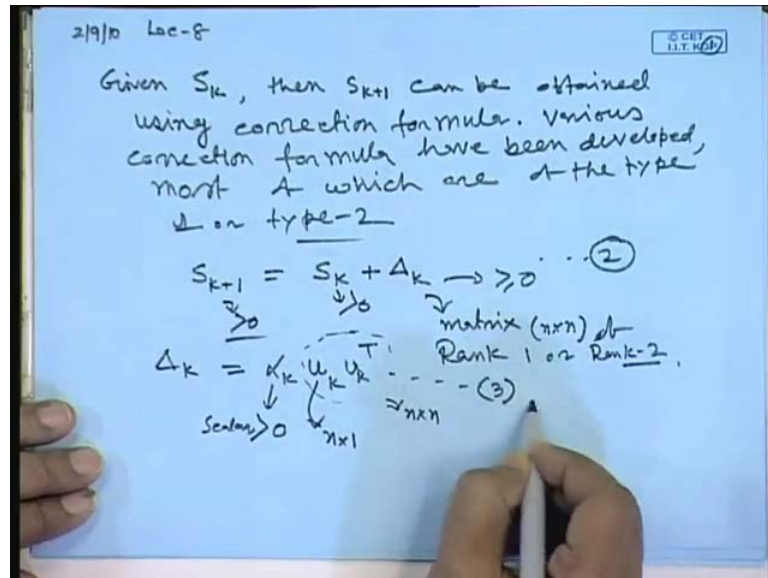 2/9/10 Lec-8
© CET
I.I.T. KGP
Given Sₖ, then Sₖ₊₁ can be obtained
using correction formula. Various
correction formula have been developed,
most of which are of the type
1 or type-2
Sₖ₊₁ = Sₖ + Δₖ → ≥0 ... (2)
>0 >0 matrix (n×n) of
Rank 1 or Rank-2.
Δₖ = αₖ uₖ uₖᵀ .... (3)
Scalar>0 n×1 n×n